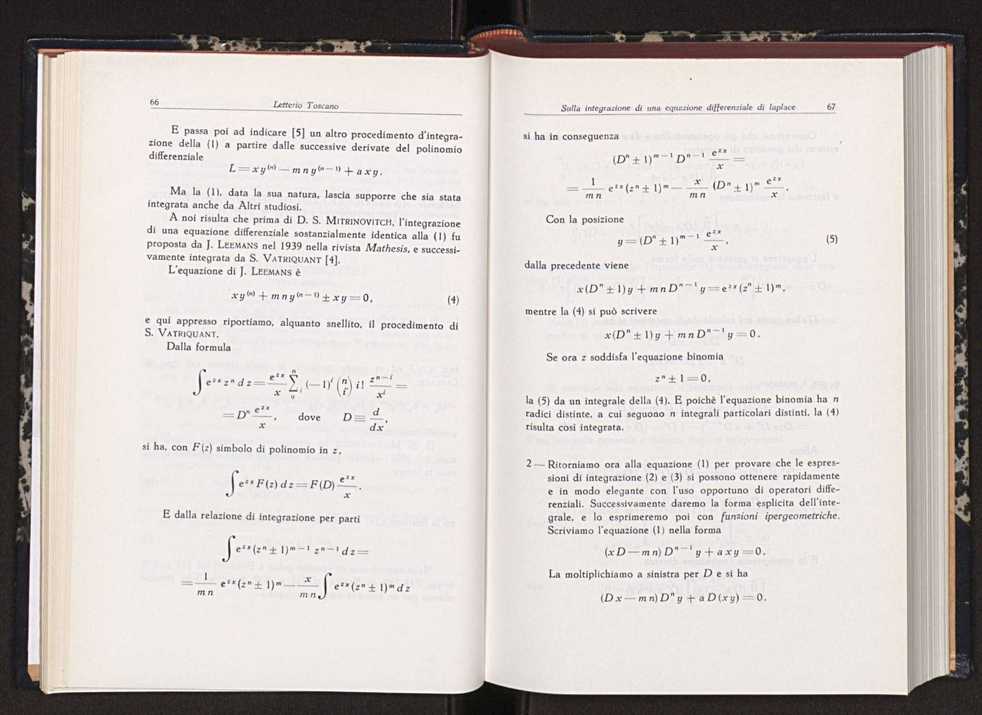 66
Letterio Toscano
E passa poi ad indicare [5] un altro procedimento d'integra-
zione della (1) a partire dalle successive derivate del polinomio
differenziale
L = x y⁽ⁿ⁾ — m n y⁽ⁿ⁻¹⁾ + a x y.
Ma la (1), data la sua natura, lascia supporre che sia stata
integrata anche da Altri studiosi.
A noi risulta che prima di D. S. MITRINOVITCH, l'integrazione
di una equazione differenziale sostanzialmente identica alla (1) fu
proposta da J. LEEMANS nel 1939 nella rivista Mathesis, e successi-
vamente integrata da S. VATRIQUANT [4].
L'equazione di J. LEEMANS è
x y⁽ⁿ⁾ + m n y⁽ⁿ⁻¹⁾ ± x y = 0, (4)
e qui appresso riportiamo, alquanto snellito, il procedimento di
S. VATRIQUANT.
Dalla formula
∫ e^{zx} zⁿ d z = \frac{e^{zx}}{x} \sum_{0}^{n}{}_i (—1)^i \binom{n}{i} i! \frac{z^{n-i}}{x^i} =
= Dⁿ \frac{e^{zx}}{x}, dove D ≡ \frac{d}{dx},
si ha, con F(z) simbolo di polinomio in z,
∫ e^{zx} F(z) dz = F(D) \frac{e^{zx}}{x}.
E dalla relazione di integrazione per parti
∫ e^{zx} (zⁿ ± 1)^{m-1} z^{n-1} dz =
= \frac{1}{mn} e^{zx} (zⁿ ± 1)^m — \frac{x}{mn} ∫ e^{zx} (zⁿ ± 1)^m dz
Sulla integrazione di una equazione differenziale di laplace 67
si ha in conseguenza
(Dⁿ ± 1)^{m-1} D^{n-1} \frac{e^{zx}}{x} =
= \frac{1}{mn} e^{zx} (zⁿ ± 1)^m — \frac{x}{mn} (Dⁿ ± 1)^m \frac{e^{zx}}{x}.
Con la posizione
y = (Dⁿ ± 1)^{m-1} \frac{e^{zx}}{x}, (5)
dalla precedente viene
x (Dⁿ ± 1) y + m n D^{n-1} y = e^{zx} (zⁿ ± 1)^m,
mentre la (4) si può scrivere
x (Dⁿ ± 1) y + m n D^{n-1} y = 0.
Se ora z soddisfa l'equazione binomia
zⁿ ± 1 = 0,
la (5) da un integrale della (4). E poichè l'equazione binomia ha n
radici distinte, a cui seguono n integrali particolari distinti, la (4)
risulta così integrata.
2 — Ritorniamo ora alla equazione (1) per provare che le espres-
sioni di integrazione (2) e (3) si possono ottenere rapidamente
e in modo elegante con l'uso opportuno di operatori diffe-
renziali. Successivamente daremo la forma esplicita dell'inte-
grale, e lo esprimeremo poi con funzioni ipergeometriche.
Scriviamo l'equazione (1) nella forma
(x D — m n) D^{n-1} y + a x y = 0.
La moltiplichiamo a sinistra per D e si ha
(D x — m n) Dⁿ y + a D (x y) = 0.